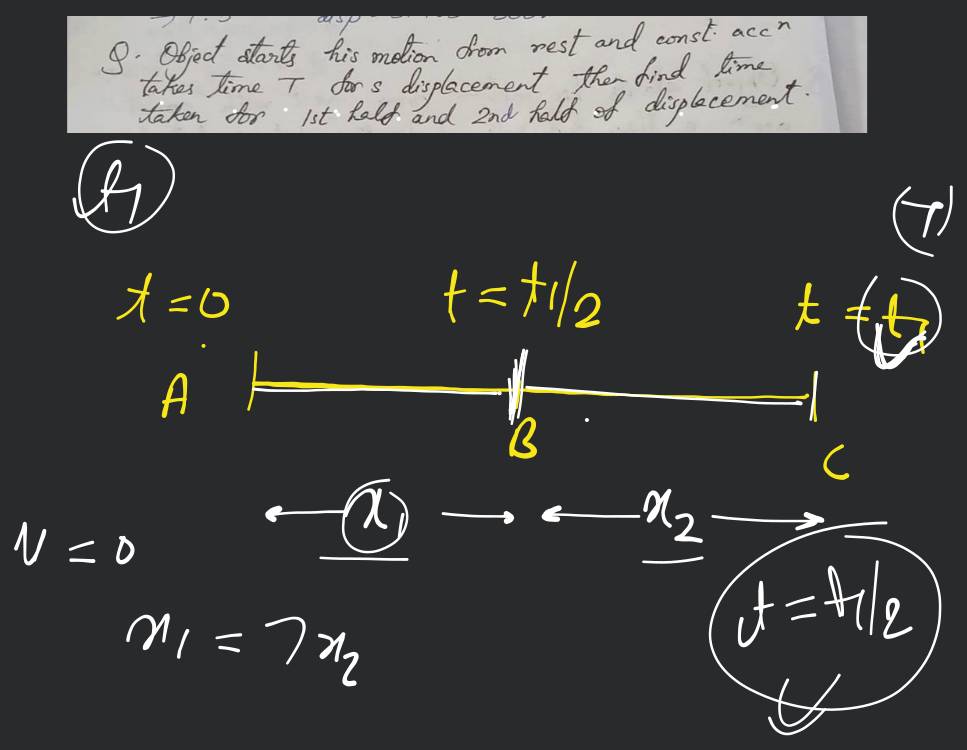 Q. Object starts his motion from rest and const. accn
takes time T for s displacement then find time
taken for 1st half and 2nd half of displacement.
t1
(T)
t = 0
t = t1/2
t = t1
A
B
C
x1
x2
V = 0
t = t1/2
x1 = 7x2